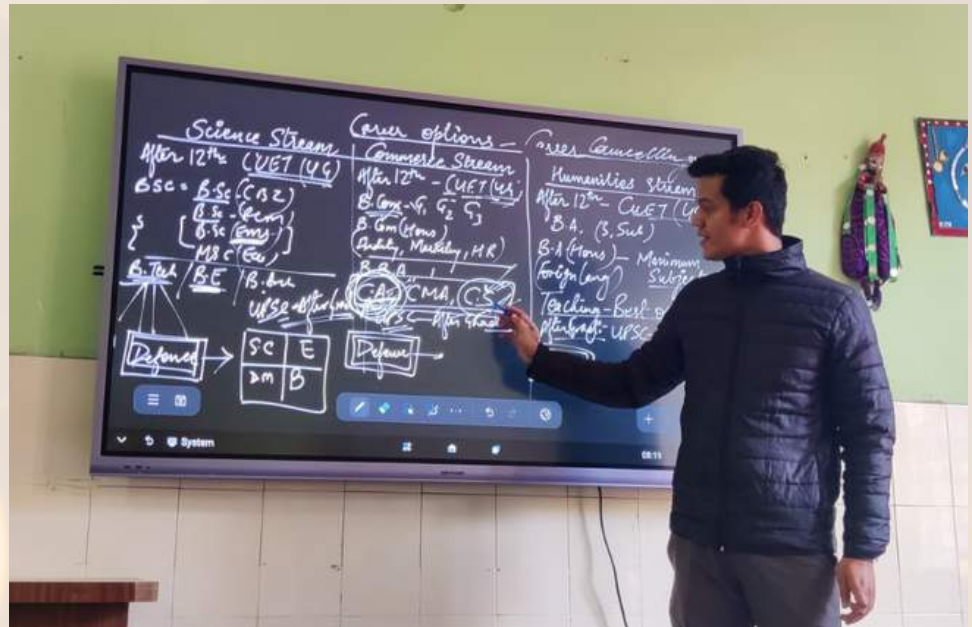 Career options - Career
Science Stream
After 12th CUET (UG)
BSc = B.Sc (CBZ)
B.Sc -
B.Sc
MSc
B.Tech / BE / B.Arch
UPSC - After
Defence
SC E
DM B
Commerce Stream
After 12th - CUET (UG)
B.Com - G1 G2 G3
B.Com (Hons)
HR)
B.B.A,
CA, CMA, CS
UPSC After Grad
Defence
Humanities Stream
After 12th - CUET (U
B.A. (3, Sub)
B.A (Hons) - Maximum
Subject
Foreign Lang)
Teaching - Best o
After Grad - UPSC
System